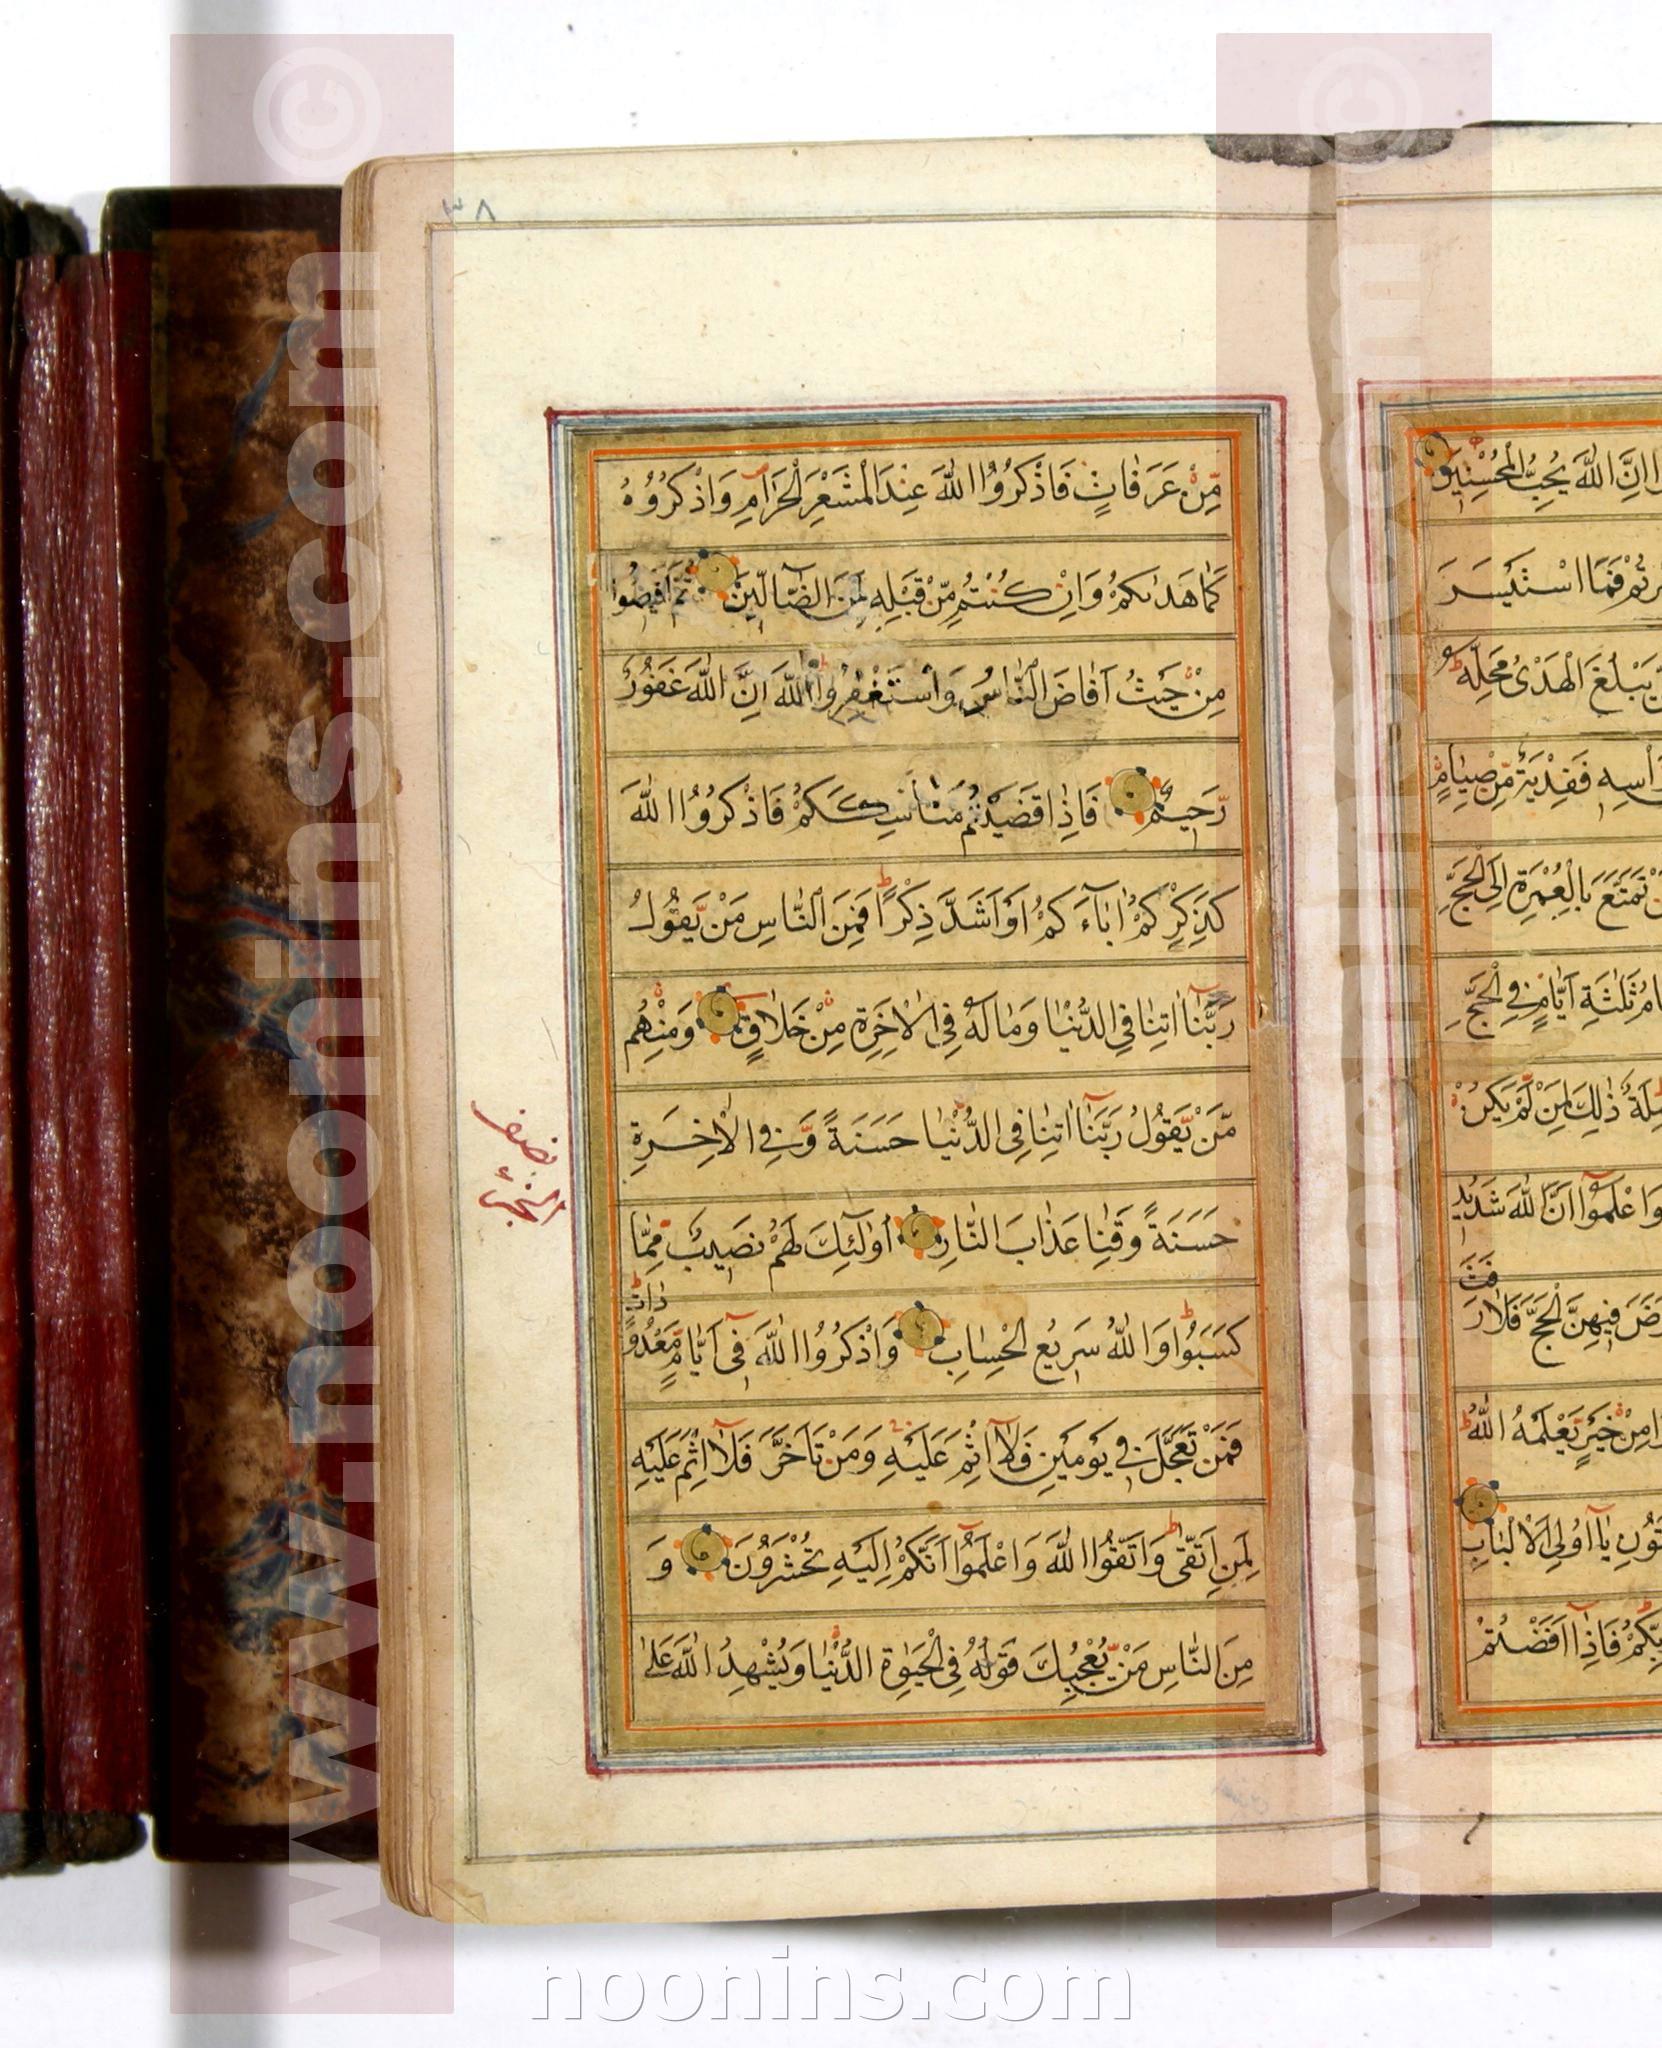 ٣٨
مِّنْ عَرَفَاتٍ فَاذْكُرُوا اللهَ عِنْدَ الْمَشْعَرِ الْحَرَامِ وَاذْكُرُوْهُ
كَمَا هَدٰىكُمْ وَاِنْ كُنْتُمْ مِّنْ قَبْلِهٖ لَمِنَ الضَّآلِّيْنَ ثُمَّ اَفِيْضُوا
مِنْ حَيْثُ اَفَاضَ النَّاسُ وَاسْتَغْفِرُوا اللهَ اِنَّ اللهَ غَفُوْرٌ
رَّحِيْمٌ فَاِذَا قَضَيْتُمْ مَنَاسِكَكُمْ فَاذْكُرُوا اللهَ
كَذِكْرِكُمْ اٰبَآءَكُمْ اَوْ اَشَدَّ ذِكْرًا فَمِنَ النَّاسِ مَنْ يَّقُوْلُ
رَبَّنَآ اٰتِنَا فِي الدُّنْيَا وَمَا لَهٗ فِي الْاٰخِرَةِ مِنْ خَلَاقٍ وَمِنْهُمْ
مَّنْ يَّقُوْلُ رَبَّنَآ اٰتِنَا فِي الدُّنْيَا حَسَنَةً وَّفِي الْاٰخِرَةِ
حَسَنَةً وَّقِنَا عَذَابَ النَّارِ اُولٰٓئِكَ لَهُمْ نَصِيْبٌ مِّمَّا
كَسَبُوْا وَاللهُ سَرِيْعُ الْحِسَابِ وَاذْكُرُوا اللهَ فِيْٓ اَيَّامٍ مَّعْدُوْدَاتٍ
فَمَنْ تَعَجَّلَ فِيْ يَوْمَيْنِ فَلَآ اِثْمَ عَلَيْهِ وَمَنْ تَاَخَّرَ فَلَآ اِثْمَ عَلَيْهِ
لِمَنِ اتَّقٰى وَاتَّقُوا اللهَ وَاعْلَمُوْٓا اَنَّكُمْ اِلَيْهِ تُحْشَرُوْنَ وَ
مِنَ النَّاسِ مَنْ يُّعْجِبُكَ قَوْلُهٗ فِي الْحَيٰوةِ الدُّنْيَا وَيُشْهِدُ اللهَ عَلٰى
نصف
الجزء
اِنَّ اللهَ يُحِبُّ الْمُحْسِنِيْنَ
فَمَا اسْتَيْسَرَ
يَبْلُغَ الْهَدْيُ مَحِلَّهٗ
فَفِدْيَةٌ مِّنْ صِيَامٍ
تَمَتَّعَ بِالْعُمْرَةِ اِلَى الْحَجِّ
ثَلٰثَةِ اَيَّامٍ فِي الْحَجِّ
ذٰلِكَ لِمَنْ لَّمْ يَكُنْ
وَاعْلَمُوْٓا اَنَّ اللهَ شَدِيْدُ
فِيْهِنَّ الْحَجَّ فَلَا رَفَثَ
مِنْ خَيْرٍ يَّعْلَمْهُ اللهُ
يٰٓاُولِي الْاَلْبَابِ
فَاِذَآ اَفَضْتُمْ
www.noonins.com ©
www.noonins.com ©
noonins.com